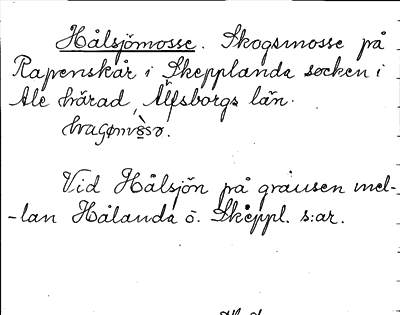 Hålsjömosse. Skogsmosse på
Rapenskår i Skepplanda socken i
Ale härad, Älfsborgs län.

Vid Hålsjön på gränsen mel-
-lan Hålanda o. Skeppl. s:ar.